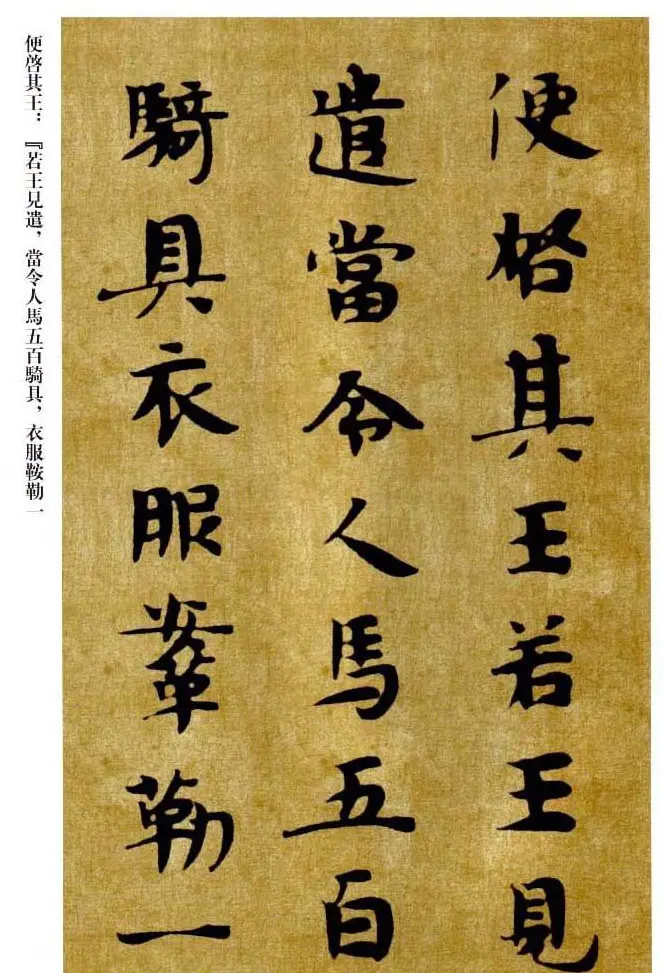 便啓其王若王見
遣當令人馬五百
騎具衣服鞌勒一
便啓其王：『若王見遣，當令人馬五百騎具，衣服鞍勒一